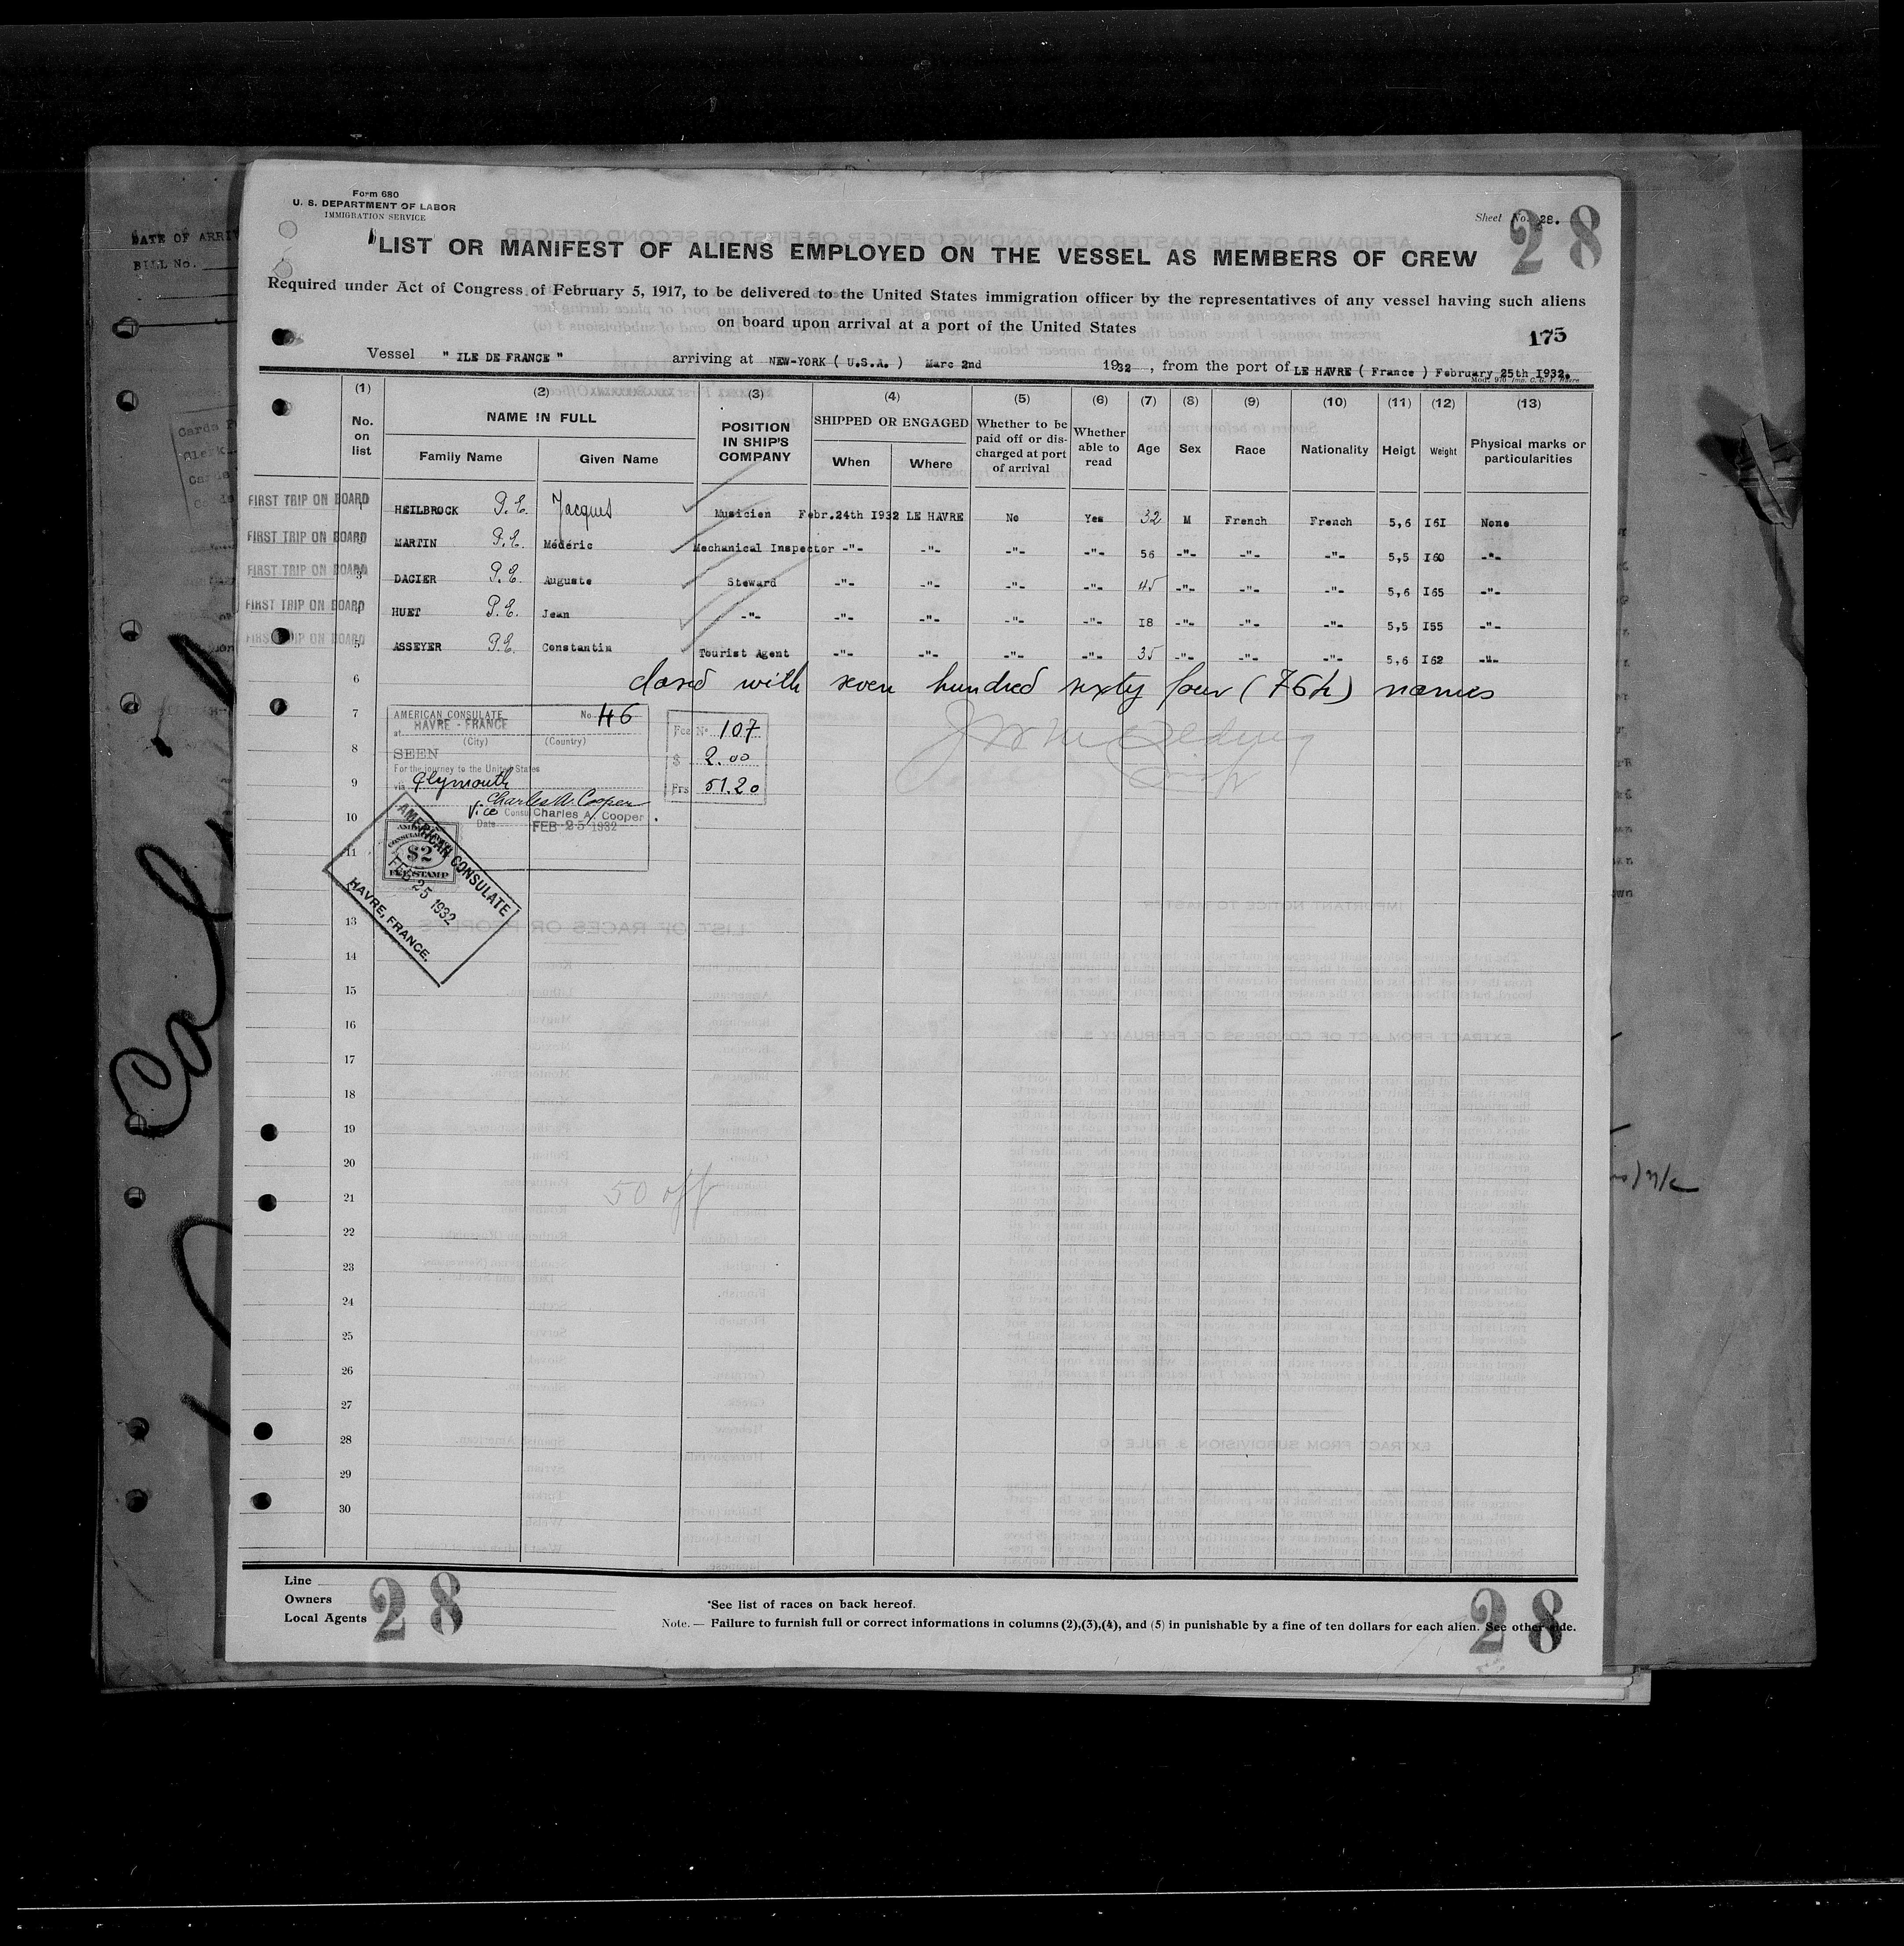 Form 680
U. S. DEPARTMENT OF LABOR
IMMIGRATION SERVICE
Sheet No. 28.
28
LIST OR MANIFEST OF ALIENS EMPLOYED ON THE VESSEL AS MEMBERS OF CREW
Required under Act of Congress of February 5, 1917, to be delivered to the United States immigration officer by the representatives of any vessel having such aliens
on board upon arrival at a port of the United States
175
Vessel " ILE DE FRANCE " arriving at NEW-YORK ( U.S.A. ) Marc 2nd 1932 , from the port of LE HAVRE ( France ) February 25th I932.
Mod. 916 Imp. C. G. T. Havre
(1) (2) (3) (4) (5) (6) (7) (8) (9) (10) (11) (12) (13)
No. on list NAME IN FULL Family Name Given Name POSITION IN SHIP'S COMPANY SHIPPED OR ENGAGED When Where Whether to be paid off or discharged at port of arrival Whether able to read Age Sex Race Nationality Heigt Weight Physical marks or particularities
FIRST TRIP ON BOARD HEILBROCK P.E. Jacques Musicien Febr.24th I932 LE HAVRE No Yes 32 M French French 5,6 I6I None
FIRST TRIP ON BOARD MARTIN P.E. Médéric Mechanical Inspector -"- -"- -"- -"- 56 -"- -"- -"- 5,5 I60 -"-
FIRST TRIP ON BOARD 3 DACIER P.E. Auguste Steward -"- -"- -"- -"- 45 -"- -"- -"- 5,6 I65 -"-
FIRST TRIP ON BOARD HUET P.E. Jean -"- -"- -"- -"- -"- I8 -"- -"- -"- 5,5 I55 -"-
FIRST TRIP ON BOARD 5 ASSEYER P.E. Constantin Tourist Agent -"- -"- -"- -"- 35 -"- -"- -"- 5,6 I62 -"-
6 closed with seven hundred sixty four (764) names
7
8
9
10
11
13
14
15
16
17
18
19
20
21
22
23
24
25
26
27
28
29
30
AMERICAN CONSULATE No. 46
at HAVRE - FRANCE
(City) (Country)
SEEN
For the journey to the United States
via Plymouth
Charles A. Cooper
Vice Consul Charles A. Cooper.
Date FEB 25 1932
Fee No 107
$ 2.00
Frs 51.20
AMERICAN CONSULATE
$2
FEE STAMP
FEB 25 1932
HAVRE, FRANCE.
50 off
Line
Owners
Local Agents
28
*See list of races on back hereof.
Note. — Failure to furnish full or correct informations in columns (2),(3),(4), and (5) in punishable by a fine of ten dollars for each alien. See other side.
28
DATE OF ARRIV
BILL No.